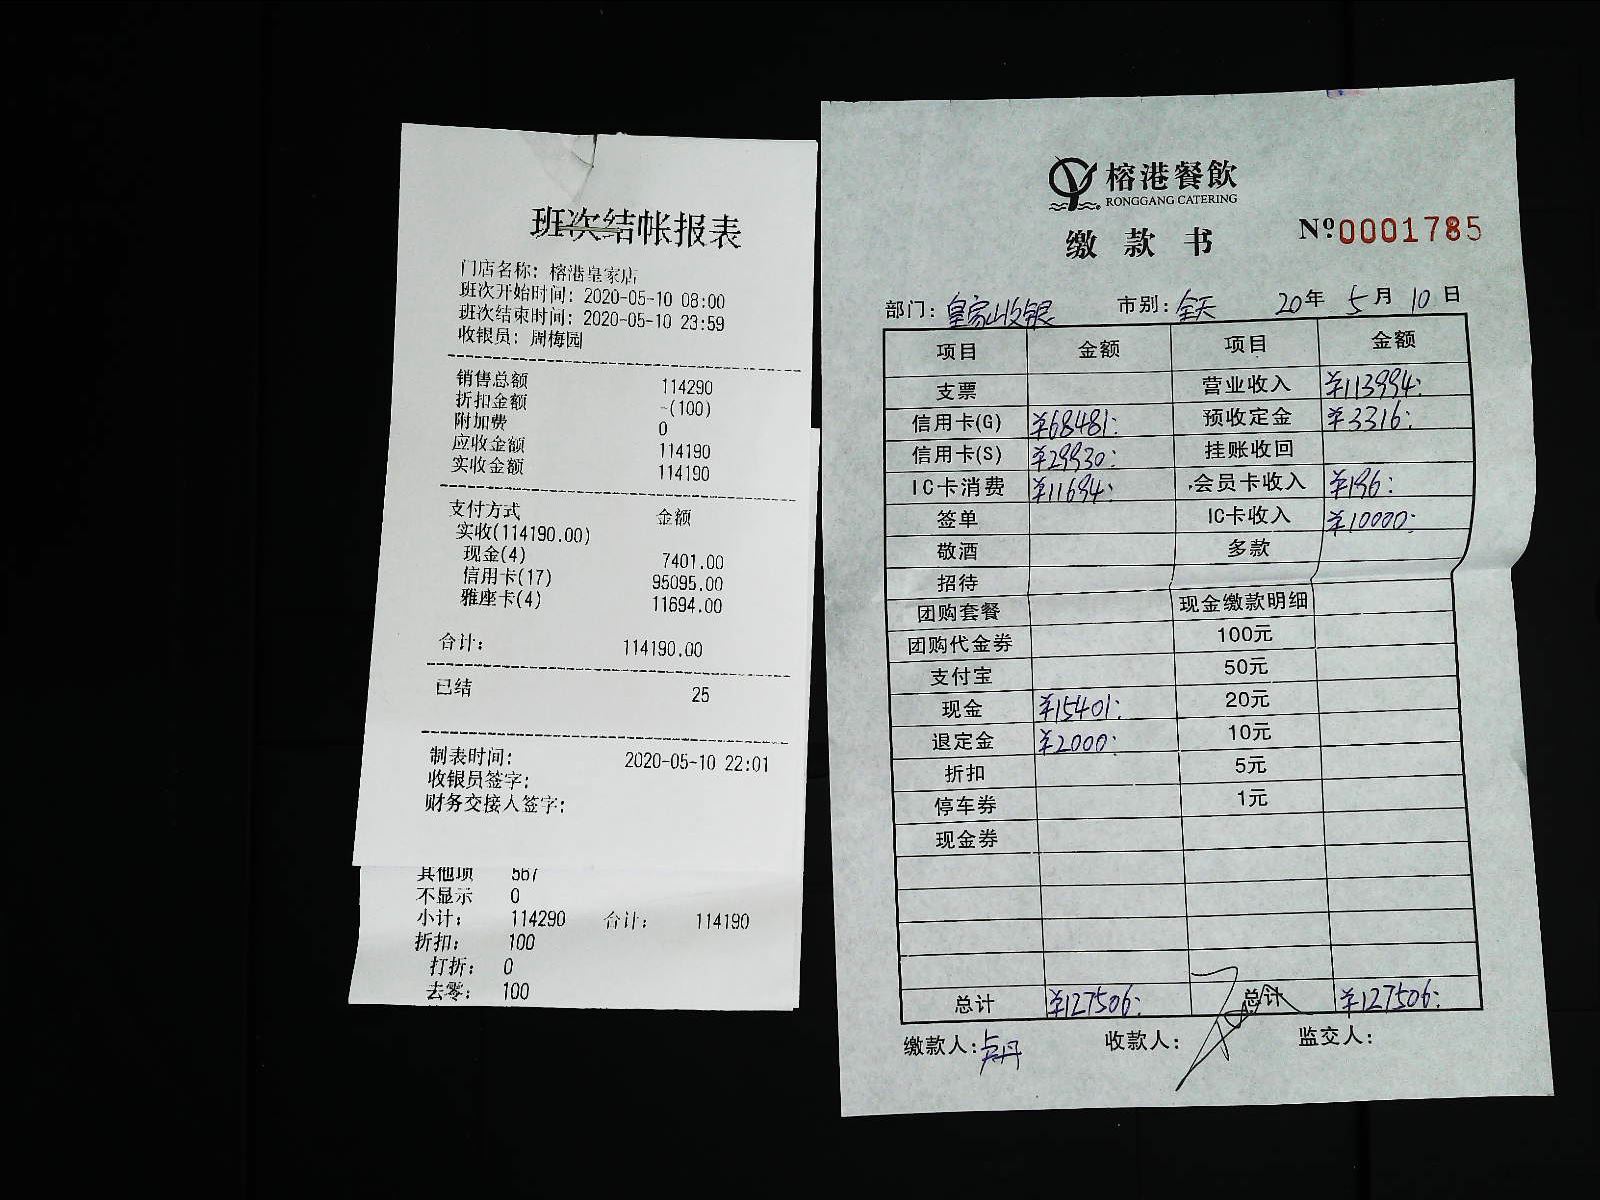 班次结帐报表
门店名称: 榕港皇家店
班次开始时间: 2020-05-10 08:00
班次结束时间: 2020-05-10 23:59
收银员: 周梅园
销售总额 114290
折扣金额 -(100)
附加费 0
应收金额 114190
实收金额 114190
支付方式 金额
实收(114190.00)
现金(4) 7401.00
信用卡(17) 95095.00
雅座卡(4) 11694.00
合计: 114190.00
已结 25
制表时间: 2020-05-10 22:01
收银员签字:
财务交接人签字:
其他项 567
不显示 0
小计: 114290 合计: 114190
折扣: 100
打折: 0
去零: 100
榕港餐飲
RONGGANG CATERING
缴款书
Nº0001785
部门: 皇家收银 市别: 全天 20年 5月 10日
项目 金额 项目 金额
支票 营业收入 ¥113994:
信用卡(G) ¥68481: 预收定金 ¥3316:
信用卡(S) ¥29930: 挂账收回
IC卡消费 ¥11694: 会员卡收入 ¥196:
签单 IC卡收入 ¥10000:
敬酒 多款
招待
团购套餐 现金缴款明细
团购代金券 100元
支付宝 50元
现金 ¥15401: 20元
退定金 ¥2000: 10元
折扣 5元
停车券 1元
现金券
总计 ¥127506: 总计 ¥127506:
缴款人: 卢丹 收款人: 监交人: